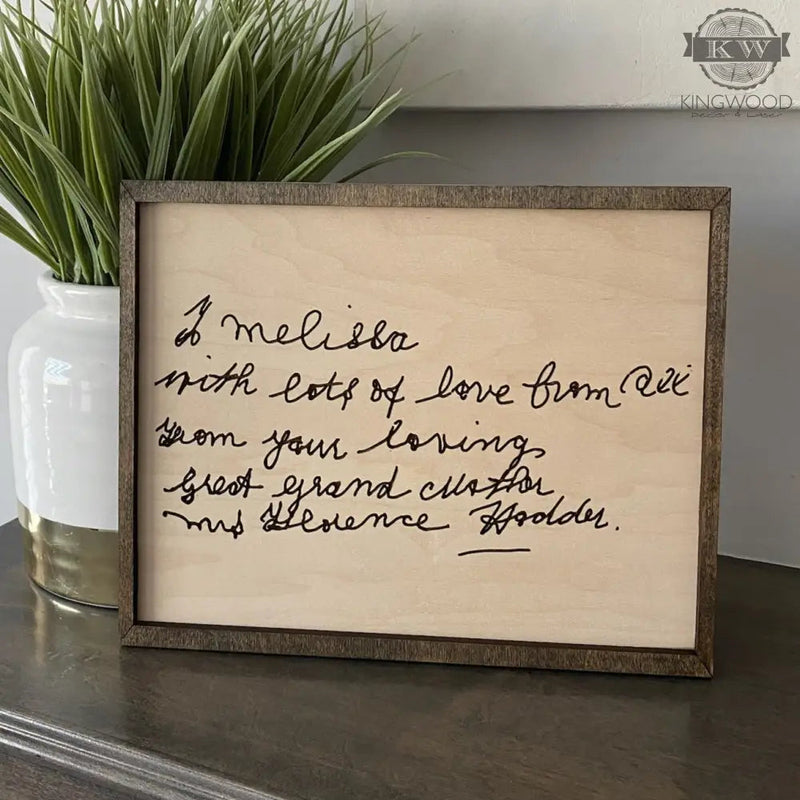 KW
KINGWOOD
DECOR & LASER
To melissa
with lots of love from all
From your loving
Great grand Mother
mrs Florence Hodder.